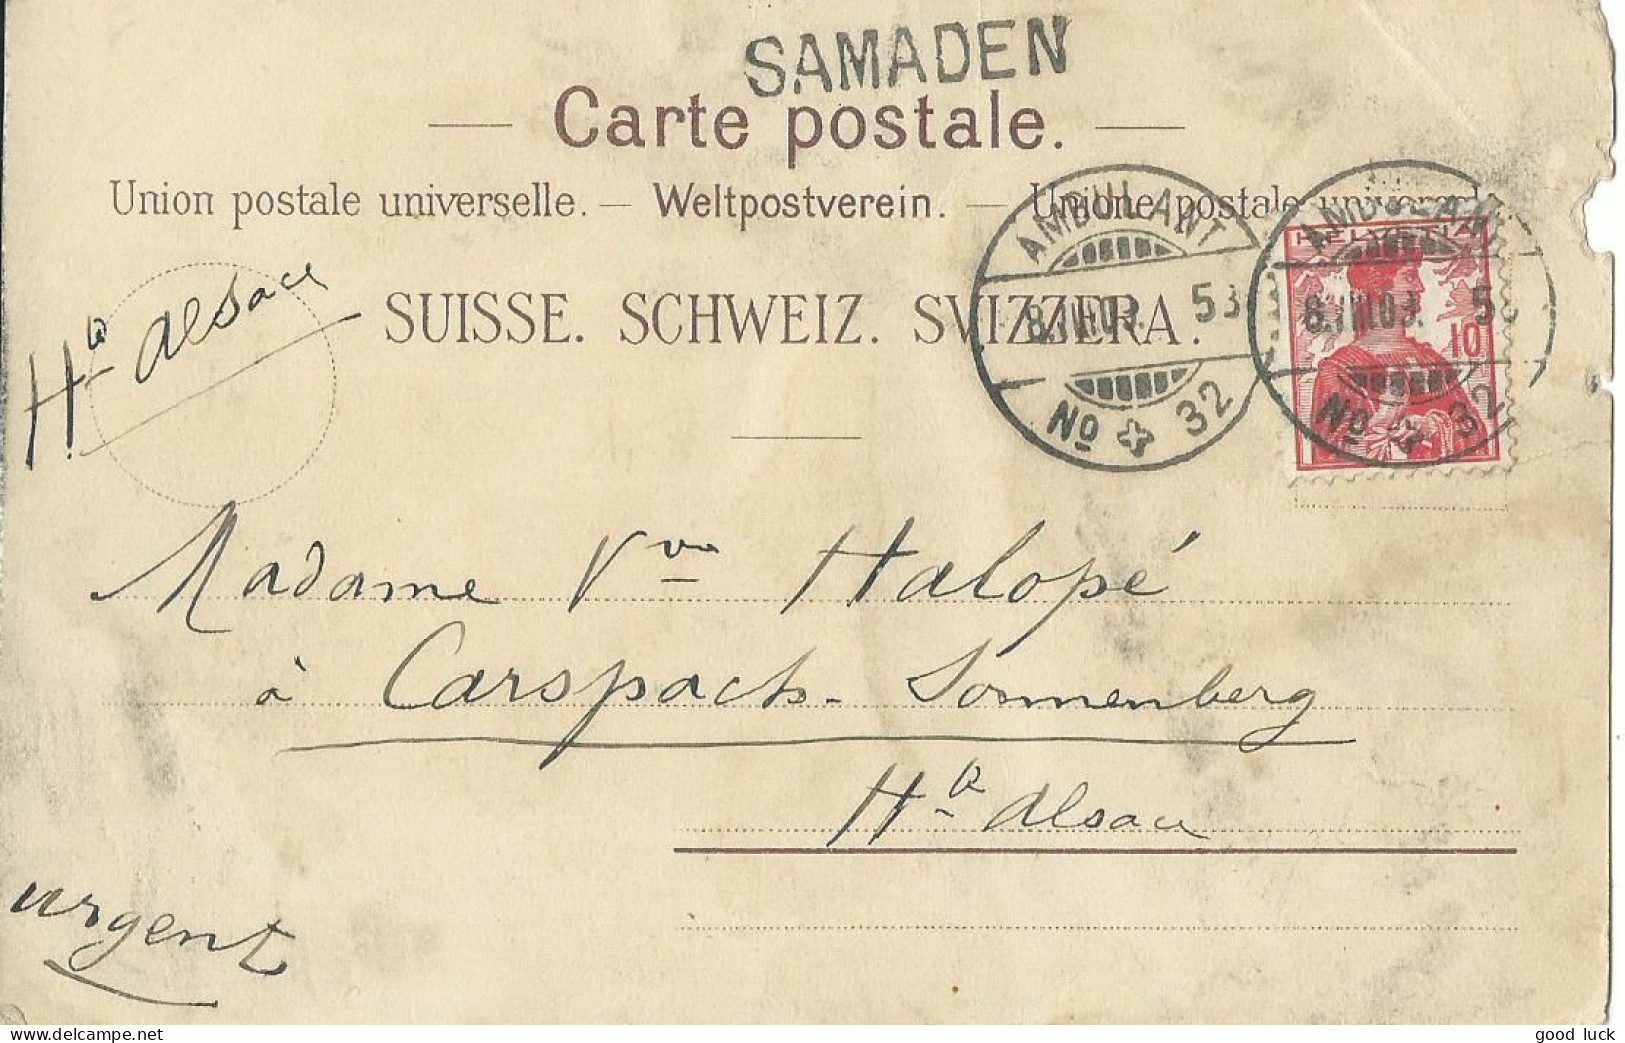 SAMADEN
Carte postale.
Union postale universelle. — Weltpostverein. — Unione postale universale
SUISSE. SCHWEIZ. SVIZZERA.
Hte Alsace
AMBULANT
8.VIII.09. 5
No 32
AMBULANT
8.VIII.09. 5
No 32
HELVETIA
10
Madame Vve Halopé
à Carspach-Sonnenberg
Hte Alsace
urgent
good luck